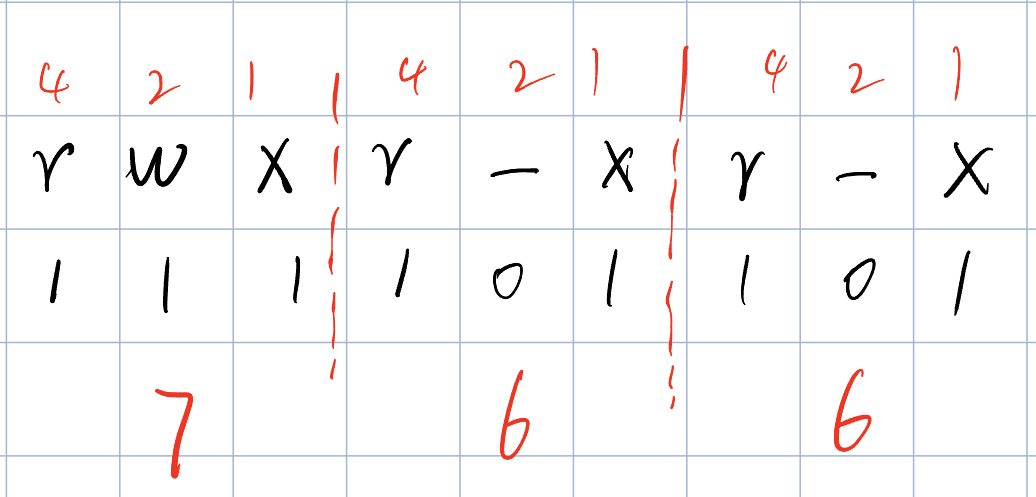 4 2 1 | 4 2 1 | 4 2 1
r w x r - x r - x
1 1 1 1 0 1 1 0 1
7 6 6